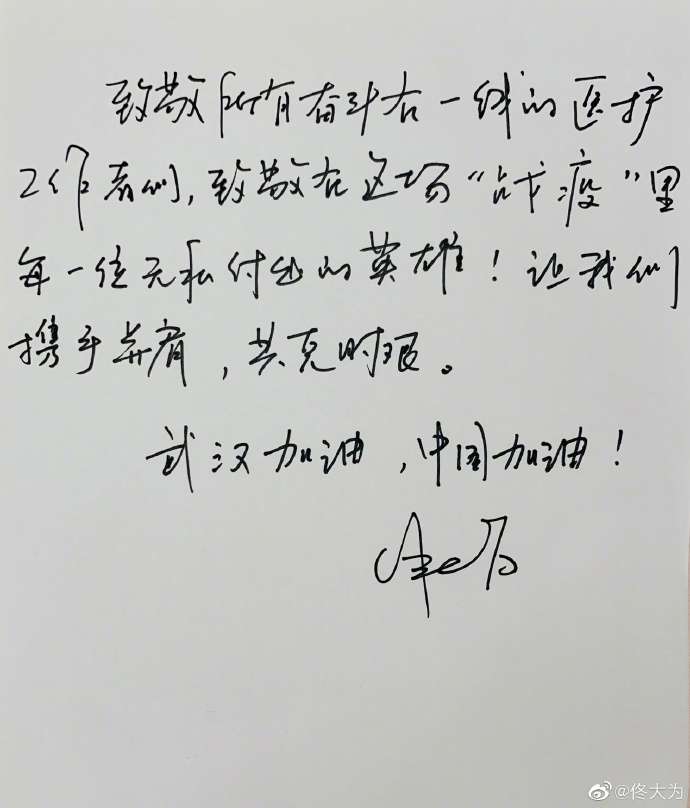 致敬所有奋斗在一线的医护
工作者们，致敬在这场“战疫”里
每一位无私付出的英雄！让我们
携手并肩，共克时艰。
武汉加油，中国加油！
@佟大为